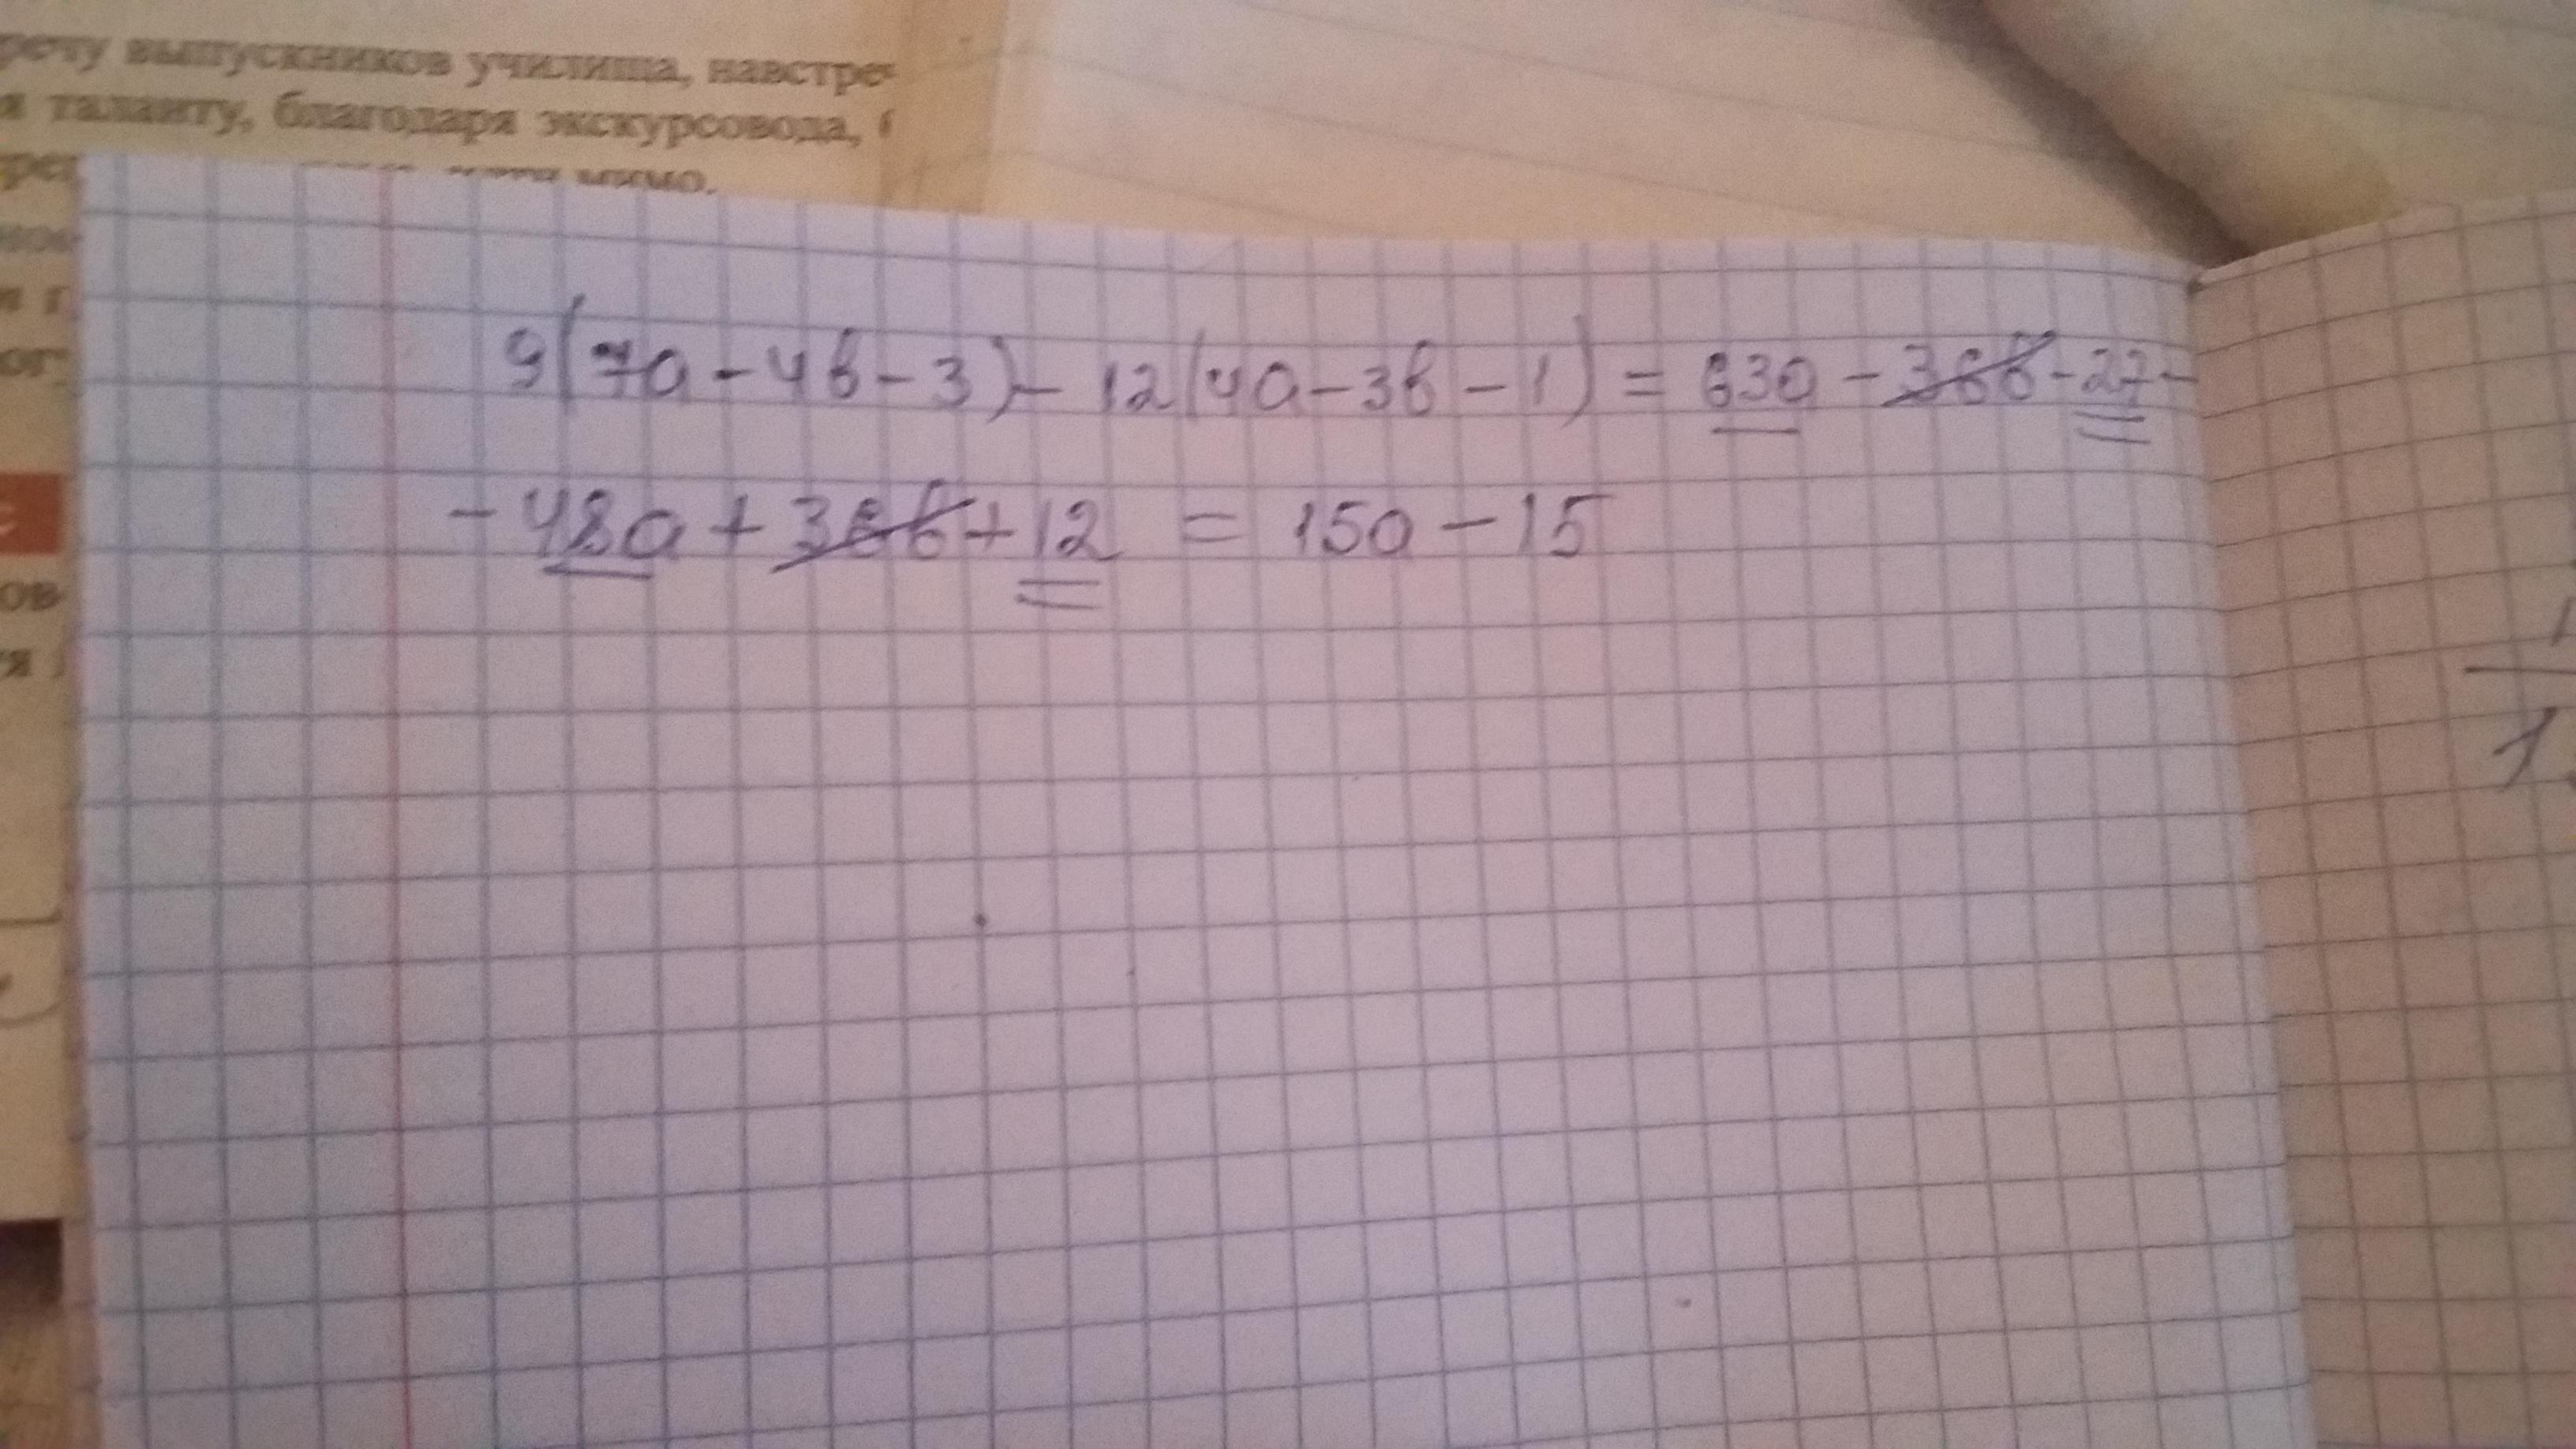 речу выпускников училища, навстре
я таланту, благодаря экскурсовода,
мимо.
9(7a-4b-3)-12(4a-3b-1)=63a-36b-27-
-48a+36b+12=15a-15